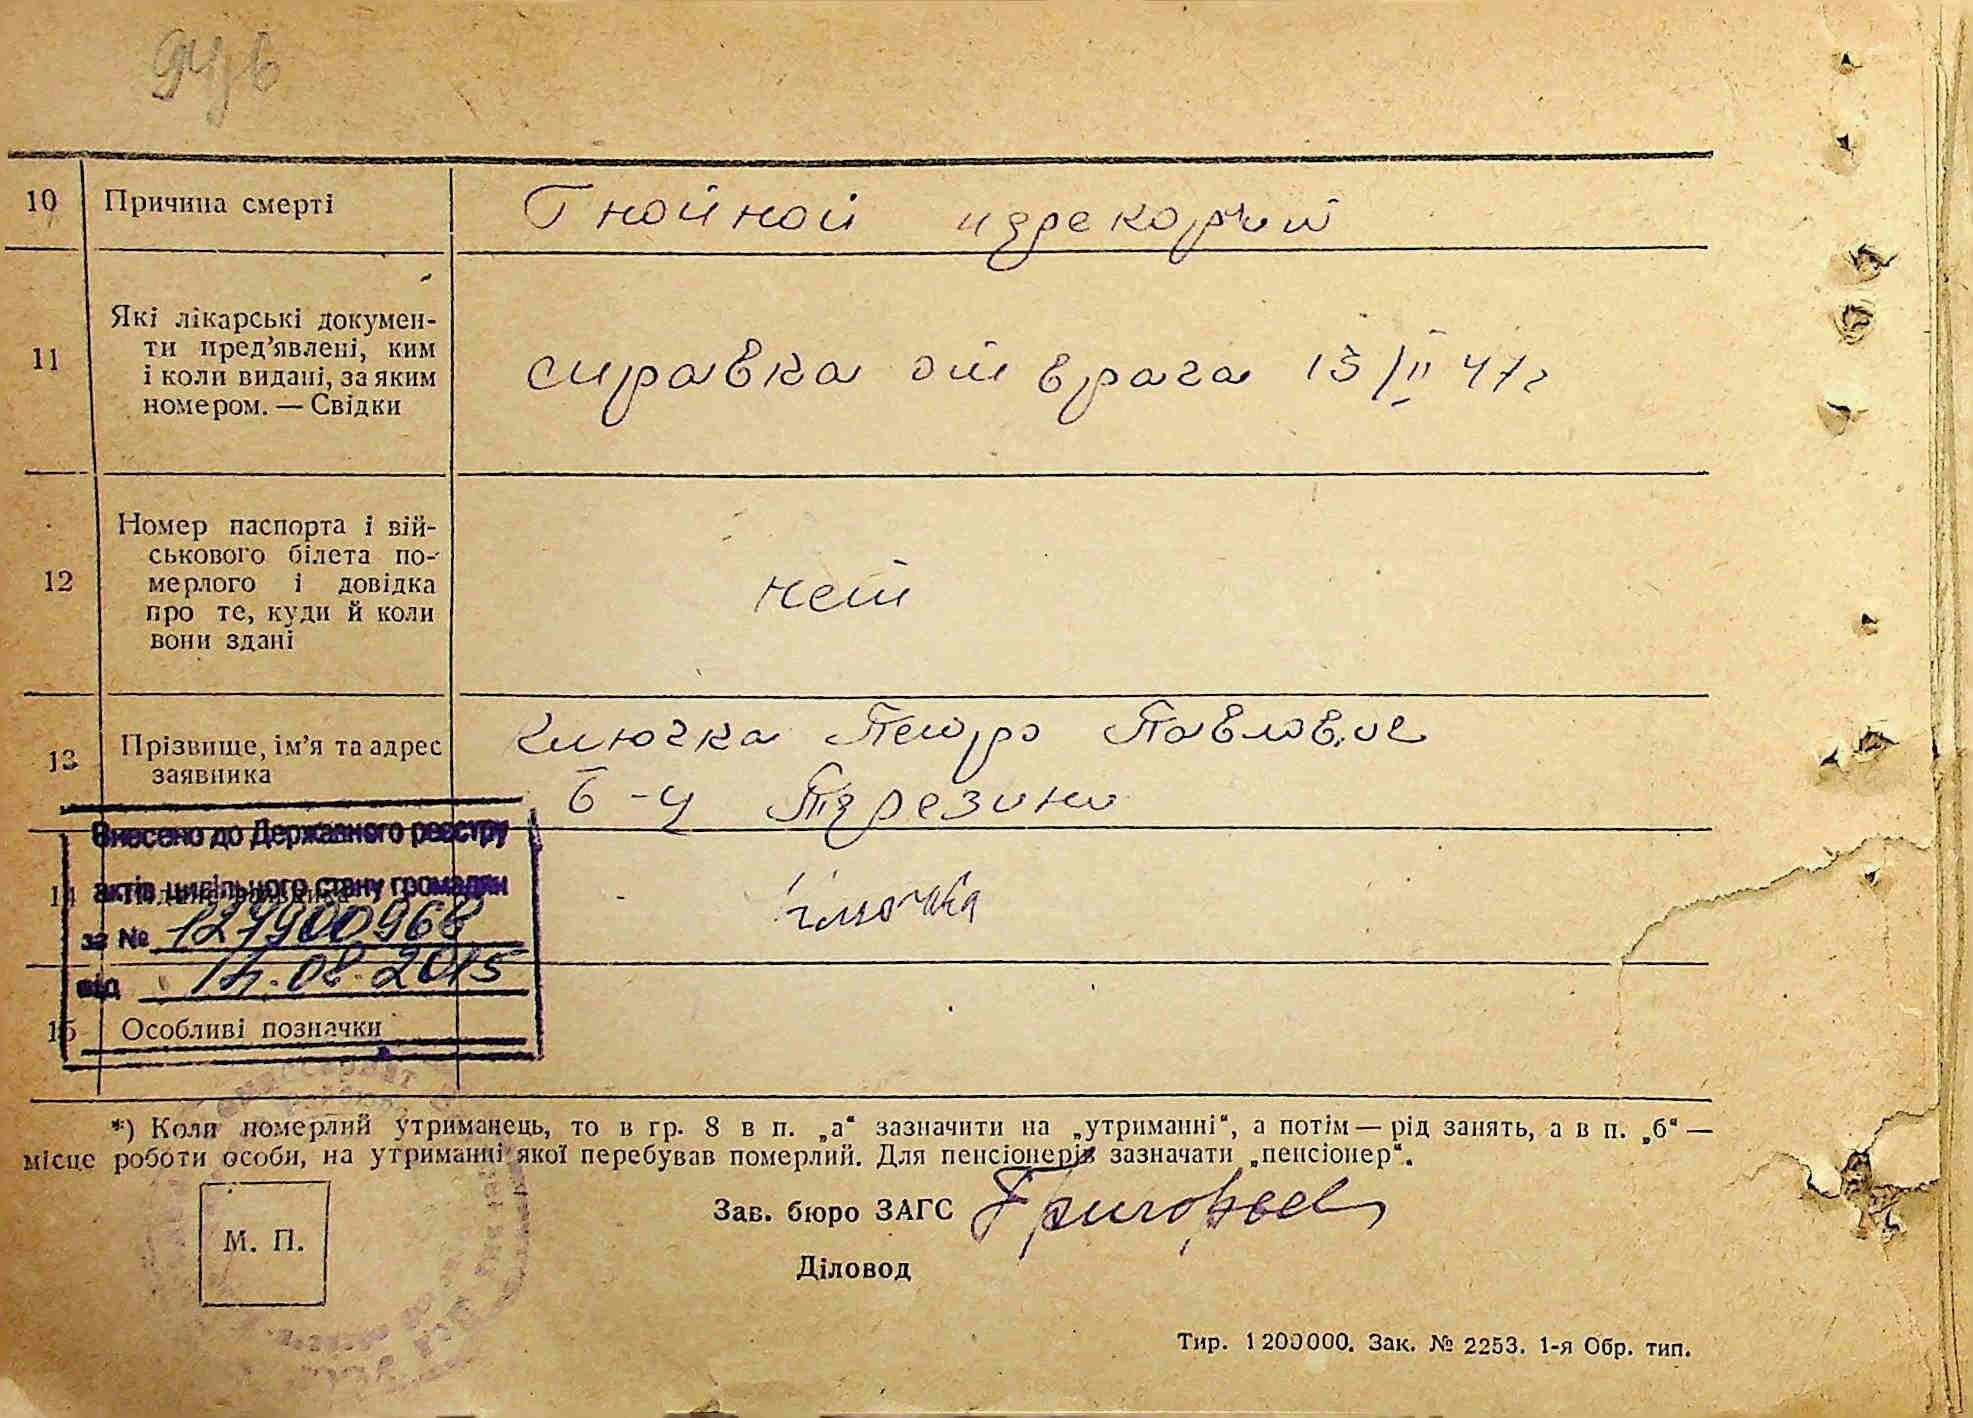 10 Причина смерті Гнойной
11 Які лікарські докумен-
ти пред’явлені, ким
і коли видані, за яким
номером. — Свідки
справка от врача 13/II 47г
12 Номер паспорта і вій-
ськового білета по-
мерлого і довідка
про те, куди й коли
вони здані
нет
13 Прізвище, ім’я та адрес
заявника
Ключка Петро Павлович
Б-Ч
Внесено до Державного реєстру
актів цивільного стану громадян
за № 127900968
від 14.08.2015
14
Ключка
15 Особливі позначки
*) Коли померлий утриманець, то в гр. 8 в п. „а“ зазначити на „утриманні“, а потім — рід занять, а в п. „б“ —
місце роботи особи, на утриманні якої перебував померлий. Для пенсіонерів зазначати „пенсіонер“.
М. П.
Зав. бюро ЗАГС
Діловод
Тир. 1200000. Зак. № 2253. 1-я Обр. тип.